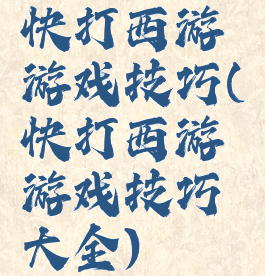 快打西游
游戏技巧(
快打西游
游戏技巧
大全)